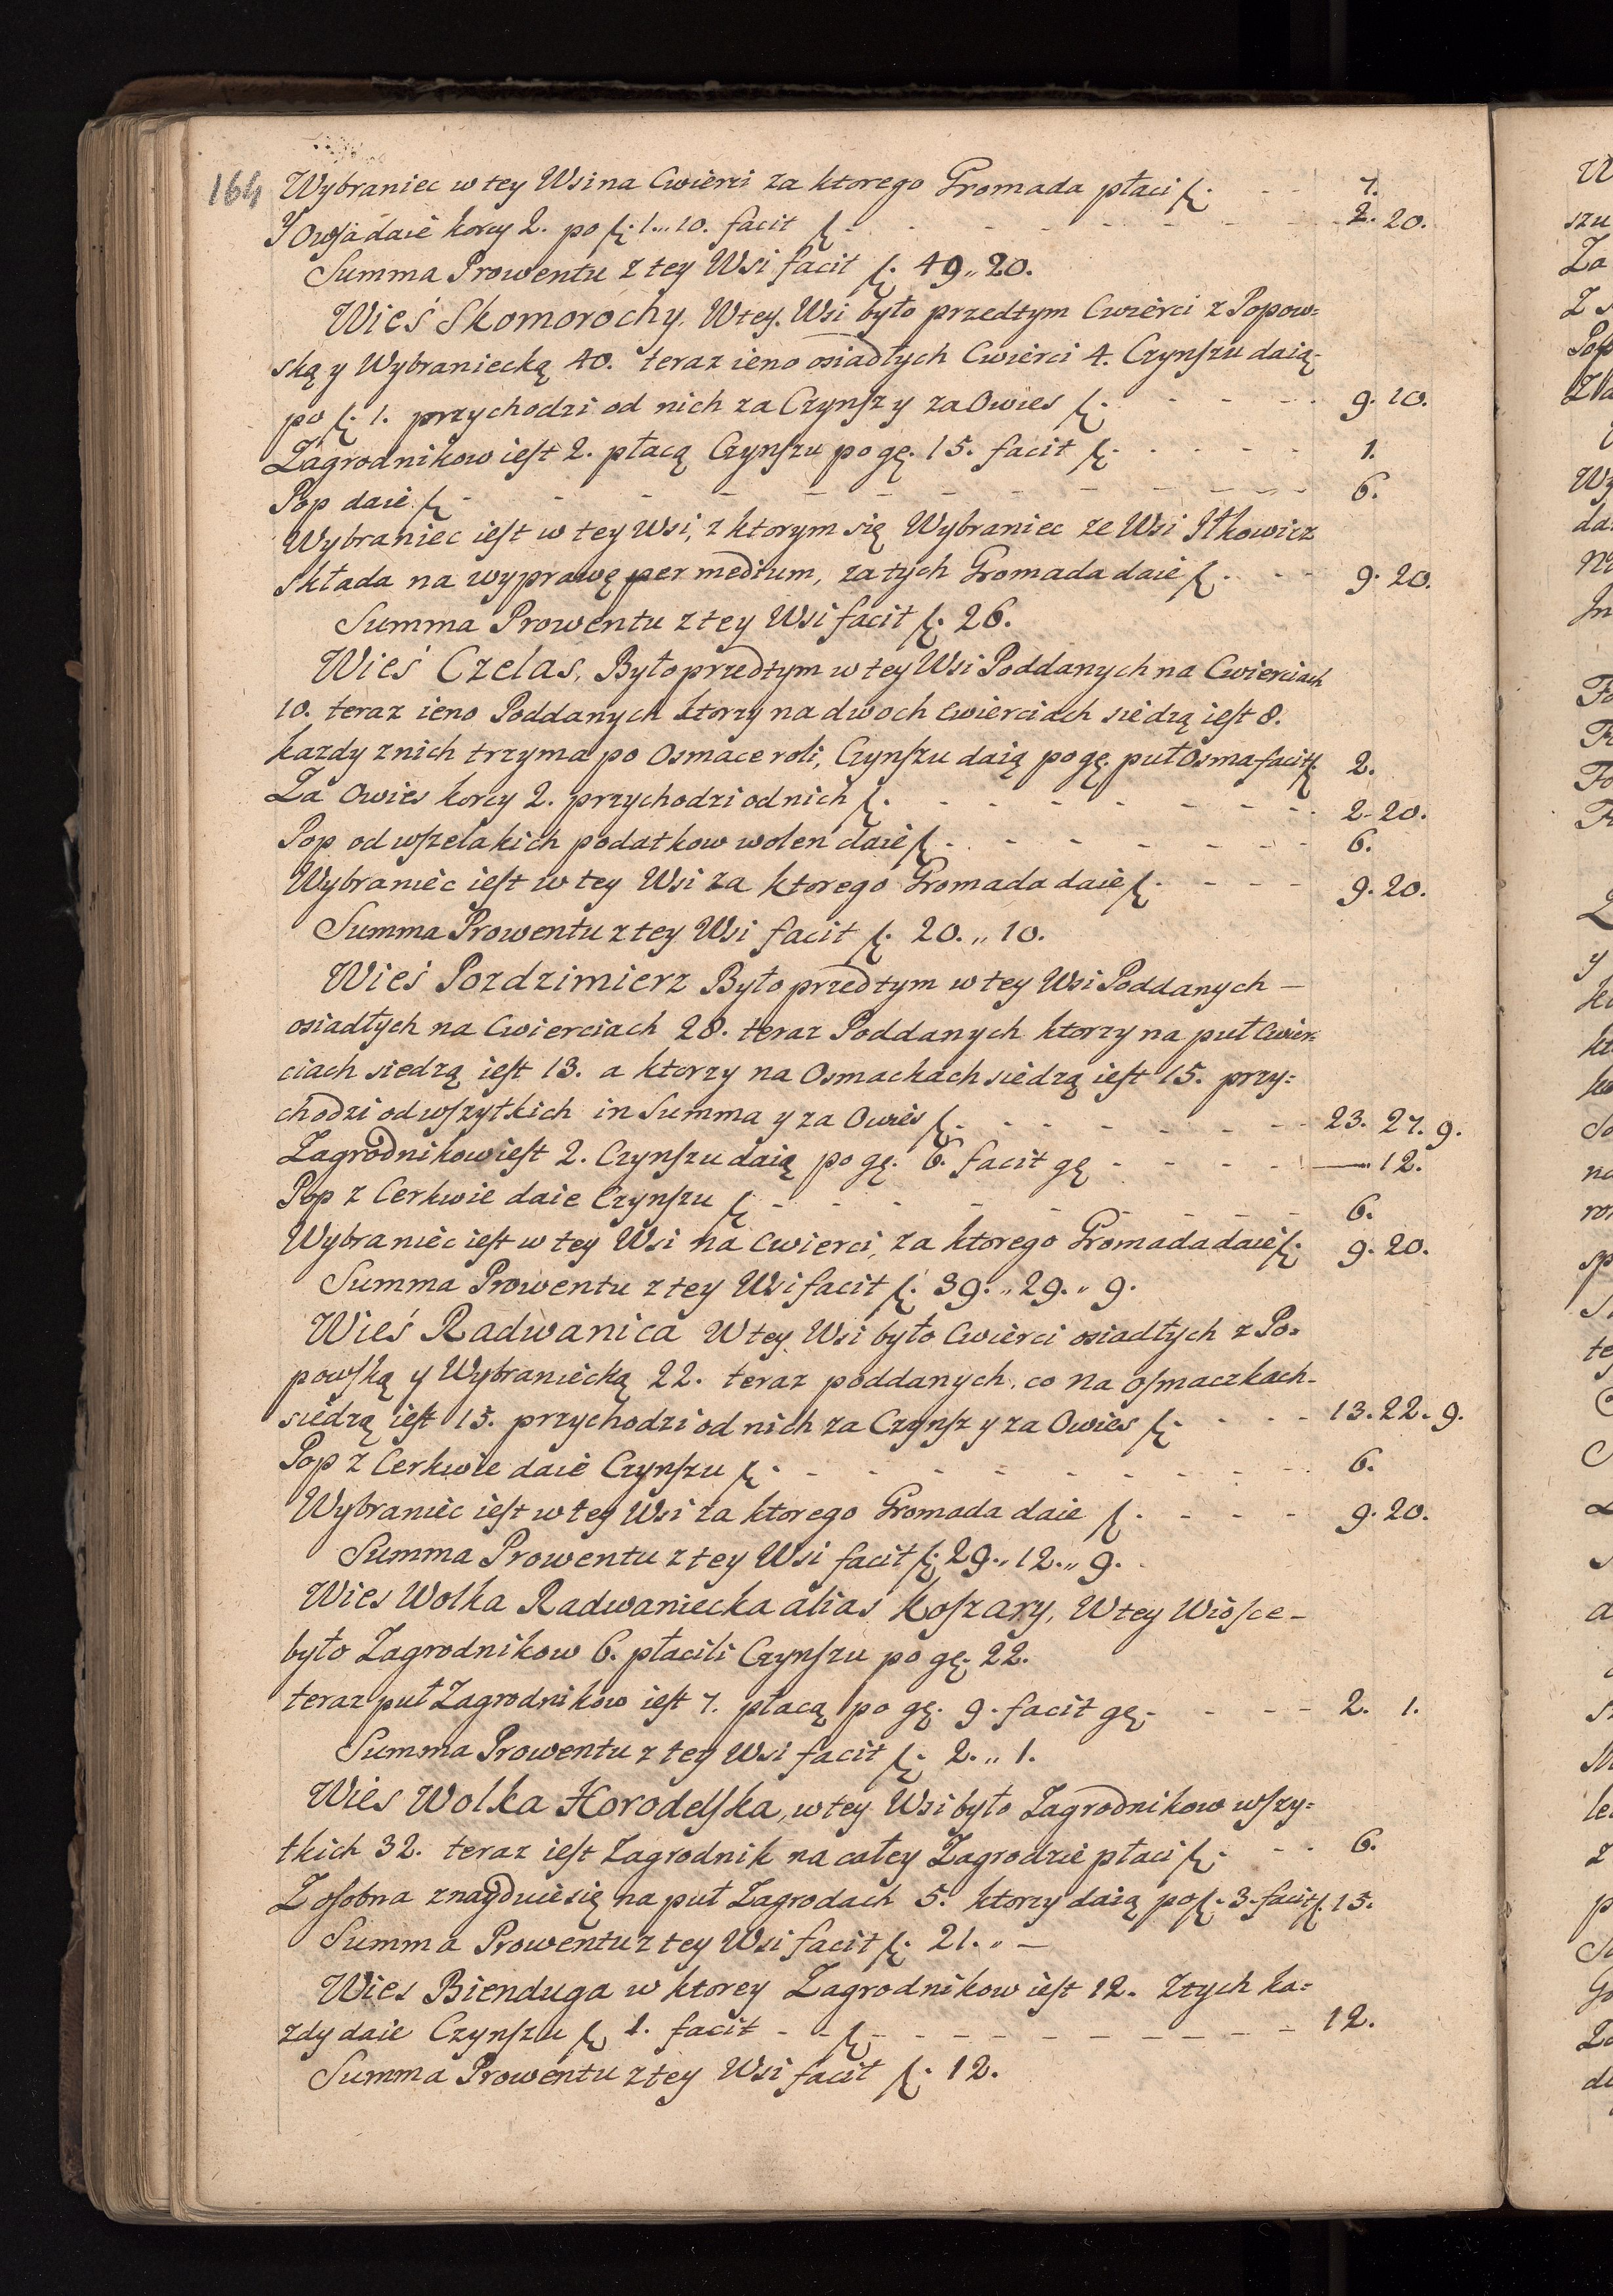 164 Wybraniec w tey Wsi na Cwierci za ktorego Gromada płaci f. - - 7.
Y Owsa daie korcy 2. po f. 1... 10. facit f. - - - - - - - 2. 20.
Summa Prowentu z tey Wsi facit f. 49,, 20.
Wieś Skomorochy. W tey Wsi było przedtym Cwierci z Popow=
ską y Wybraniecką 40. teraz ieno osiadłych Cwierci 4. Czynſzu daią
po f. 1. przychodzi od nich za Czynſz y za Owies f. - - - - 9. 10.
Zagrodnikow ieſt 2. płacą Czynſzu po gę. 15. facit f. - - - - 1.
Pop daie f. - - - - - - - - - - - 6.
Wybraniec ieſt w tey Wsi, z ktorym się Wybraniec ze Wsi Iłkowicz
składa na wyprawę per medium, za tych Gromada daie f. - - 9. 20.
Summa Prowentu z tey Wsi facit f. 26.
Wieś Czelas. Było przedtym w tey Wsi Poddanych na Cwierciach
10. teraz ieno Poddanych ktorzy na dwoch cwierciach siedzą ieſt 8.
kazdy z nich trzyma po Osmace roli, Czynſzu daią po gę. puł Osma facit f. 2.
Za Owies korcy 2. przychodzi od nich f. - - - - - - - 2. 20.
Pop od wſzelakich podatkow wolen daie f. - - - - - - 6.
Wybraniec ieſt w tey Wsi za ktorego Gromada daie f. - - - 9. 20.
Summa Prowentu z tey Wsi facit f. 20.,, 10.
Wieś Pozdzimierz Było przedtym w tey Wsi Poddanych —
osiadłych na Cwierciach 28. teraz Poddanych ktorzy na puł Cwier=
ciach siedzą ieſt 13. a ktorzy na Osmackach siedzą ieſt 15. przy=
chodzi od wſzytkich in Summa y za Owies f. - - - - - - 23. 27. 9.
Zagrodnikow ieſt 2. Czynſzu daią po gę. 6. facit gę - - - - — 12.
Pop z Cerkwie daie Czynſzu f. - - - - - - - - 6.
Wybraniec ieſt w tey Wsi na Cwierci, za ktorego Gromada daie f. 9. 20.
Summa Prowentu z tey Wsi facit f. 39.,, 29.,, 9.
Wieś Radwanica W tey Wsi było Cwierci osiadłych z Po=
powſką y Wybraniecką 22. teraz poddanych, co na oſmaczkach
siedzą ieſt 15. przychodzi od nich za Czynſz y za Owies f. - - - - 13. 22. 9.
Pop z Cerkwie daie Czynſzu f. - - - - - - - - - 6.
Wybraniec ieſt w tey Wsi za ktorego Gromada daie f. - - - 9. 20.
Summa Prowentu z tey Wsi facit f. 29.,, 12.,, 9.
Wies Wolka Radwaniecka alias Koſzary, W tey Wioſce -
było Zagrodnikow 6. płacili Czynſzu po gę. 22.
teraz puł Zagrodnikow ieſt 7. płacą po gę. 9. facit gę. - - - - 2. 1.
Summa Prowentu z tey Wsi facit f. 2.,, 1.
Wies Wolka Horodelſka, w tey Wsi było Zagrodnikow wſzy=
tkich 32. teraz ieſt Zagrodnik na całey Zagrodzie płaci f. - - 6.
Z oſobna znayduie się na puł Zagrodach 5. ktorzy daią po f. 3. facit f. 15.
Summa Prowentu z tey Wsi facit f. 21.,, —
Wies Bienduga w ktorey Zagrodnikow ieſt 12. Z tych ka=
zdy daie Czynſzu f. 1. facit - - f. - - - - - - - - - 12.
Summa Prowentu z tey Wsi facit f. 12.